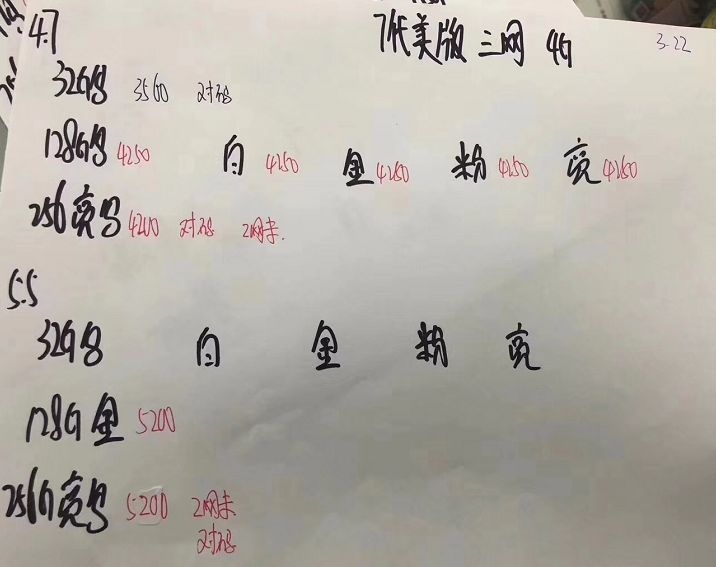 4.7 7代美版 三网 4G 3.22
32G 3560 对裙
128G 4250 白 4250 金 4250 粉 4250 亮 4250
256 亮 4200 对裙 2网卡.
5.5
32G 白 金 粉 亮
128G 金 5200
256G 亮 5200 2网卡